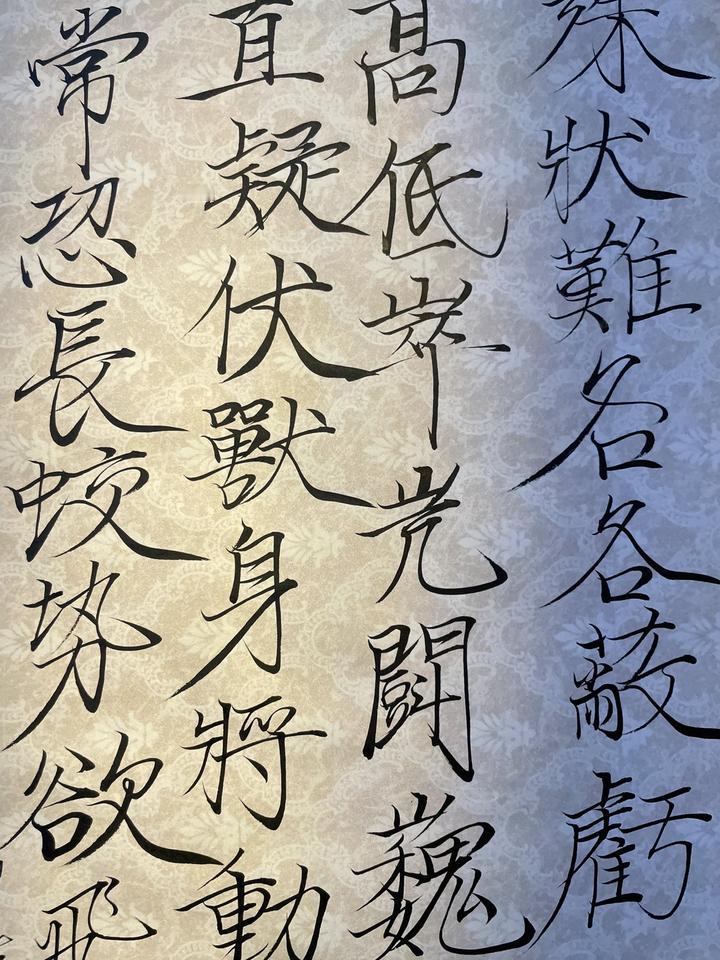 殊狀難名各蔽虧
高低崒屼闘巍
直疑伏獸身將動
常恐長蛟勢欲飛